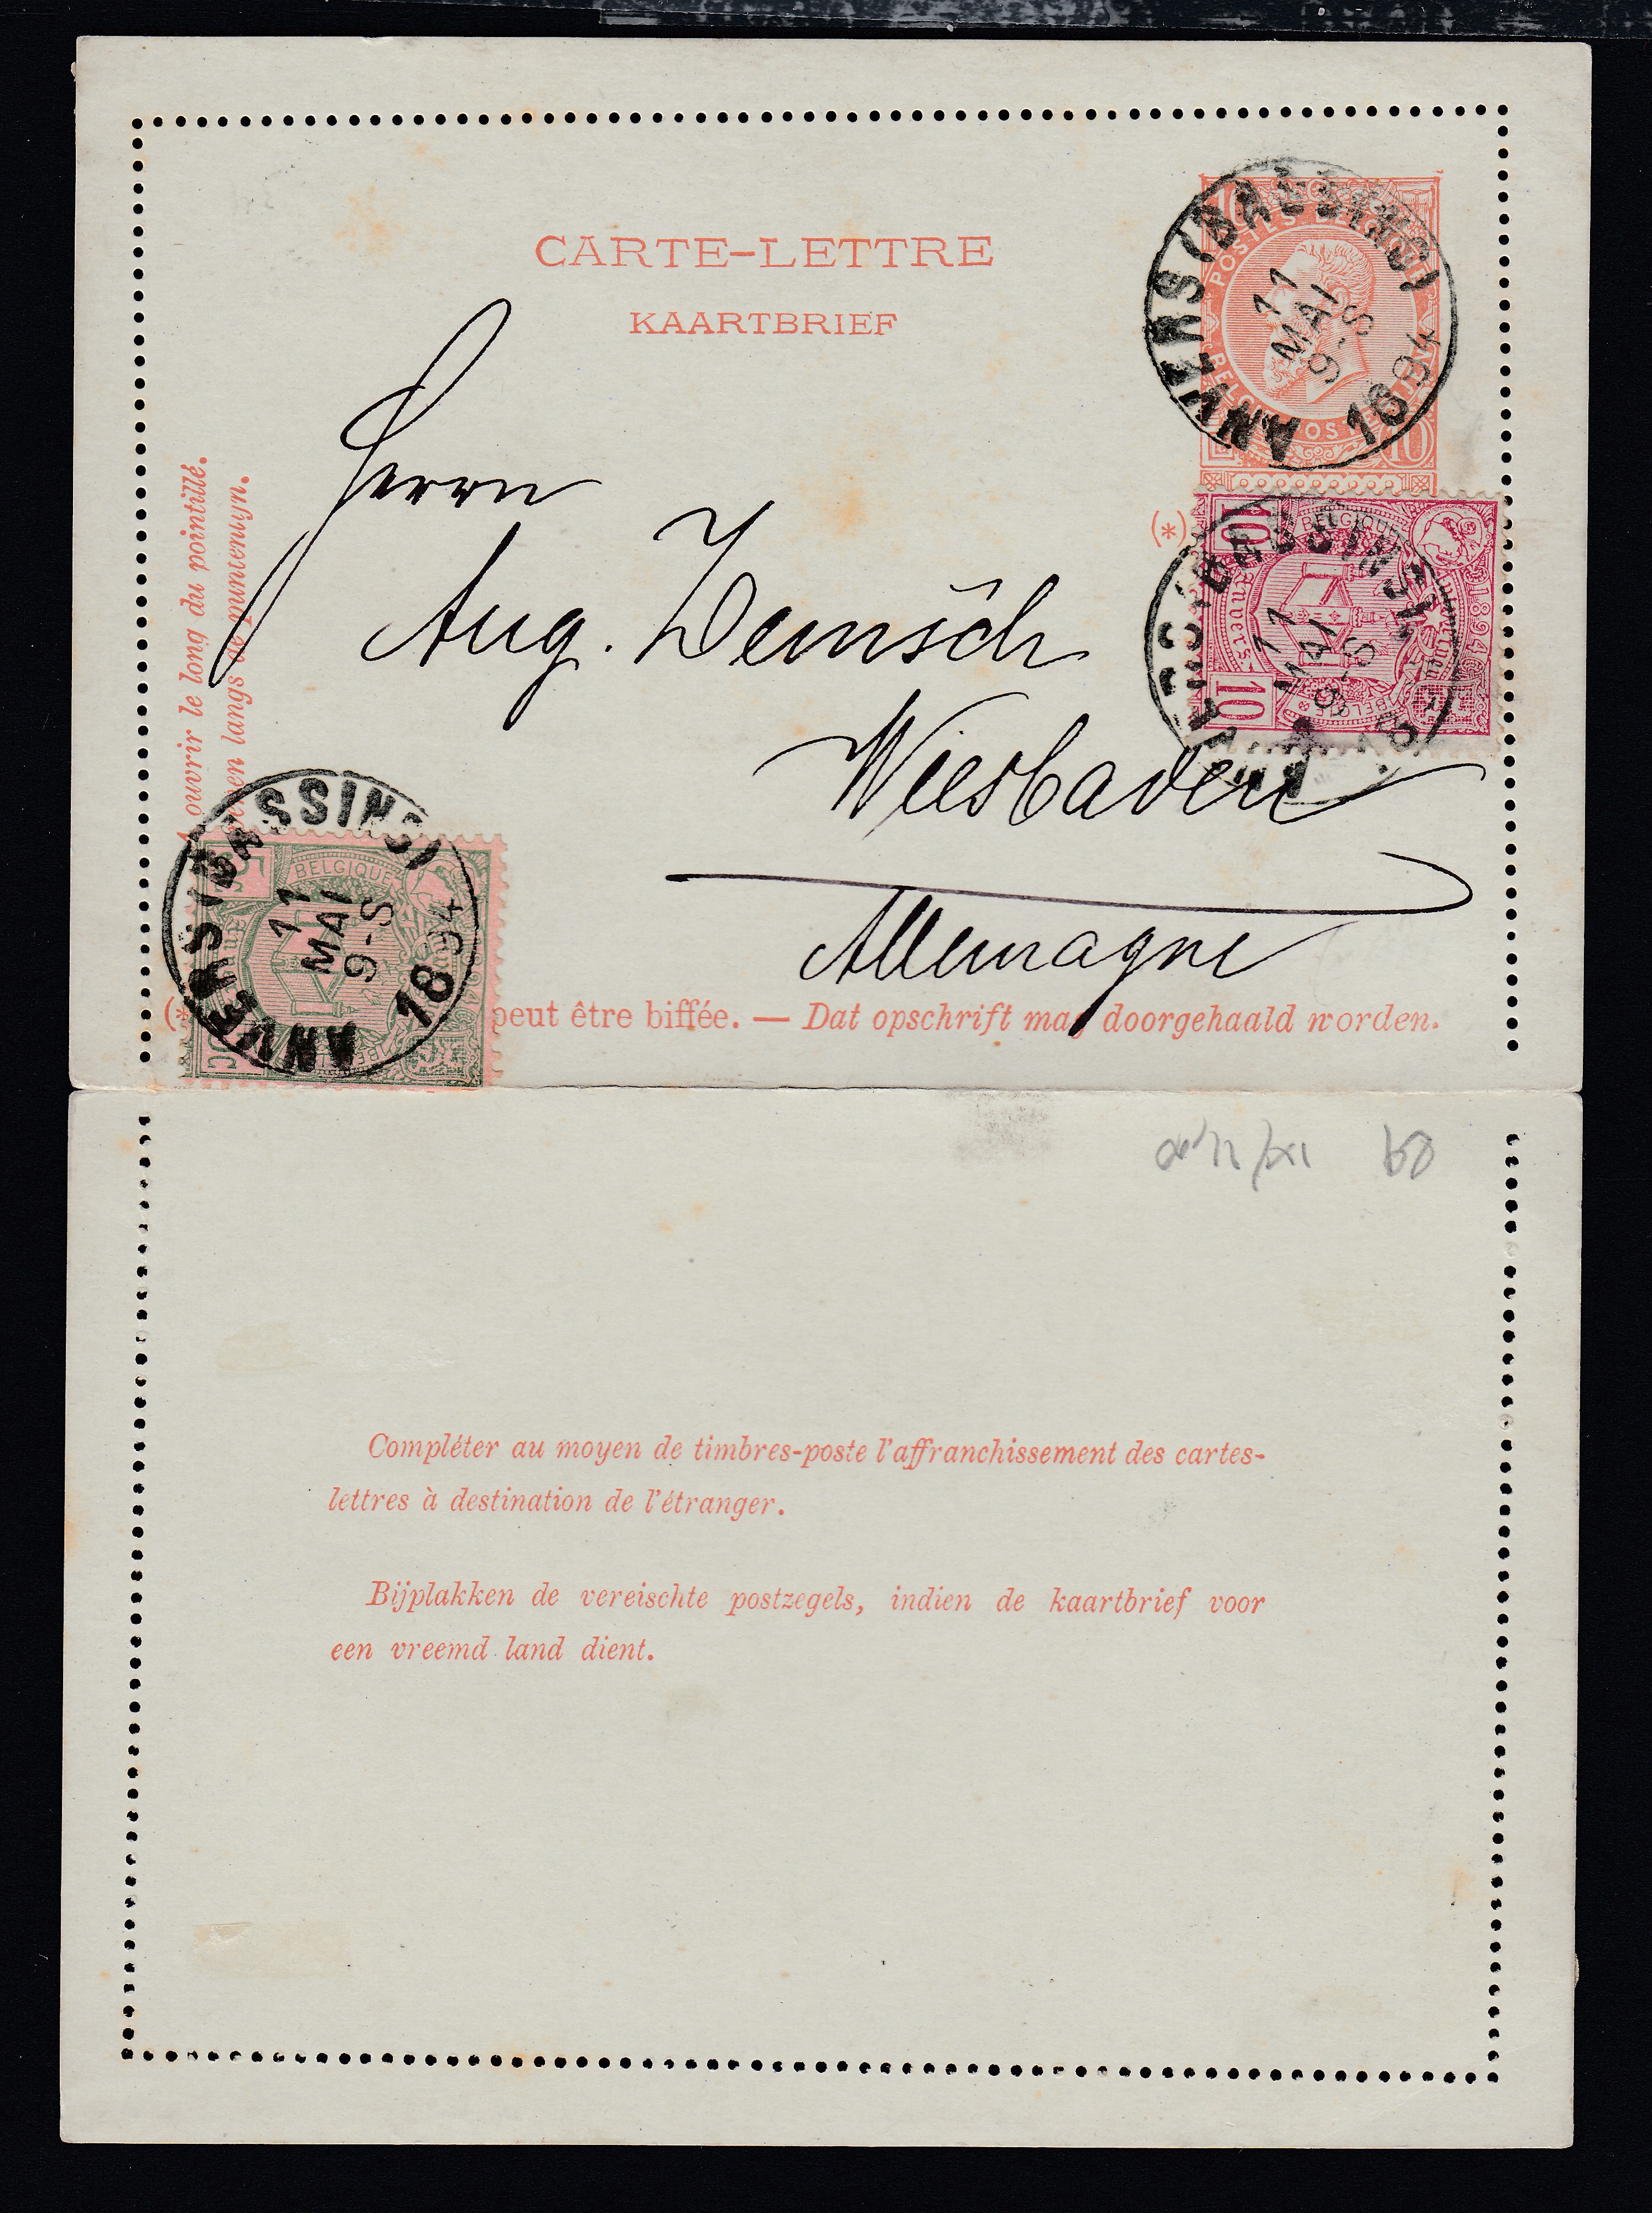 CARTE-LETTRE
KAARTBRIEF
POSTES
10
ANVERS (BASSINS)
11
MAI
9-S
1894
Herrn
Aug. Demsch
Wiesbaden
Allemagne
(*)
BELGIQUE
1894
Anvers
10
10
BELGIE
ANVERS (BASSINS)
11
MAI
9-S
A ouvrir le long du pointillé.
langs de puntenlijn.
BELGIQUE
ANVERS (BASSINS)
11
MAI
9-S
1894
(* peut être biffée. — Dat opschrift mag doorgehaald worden.
Compléter au moyen de timbres-poste l'affranchissement des cartes-
lettres à destination de l'étranger.
Bijplakken de vereischte postzegels, indien de kaartbrief voor
een vreemd land dient.